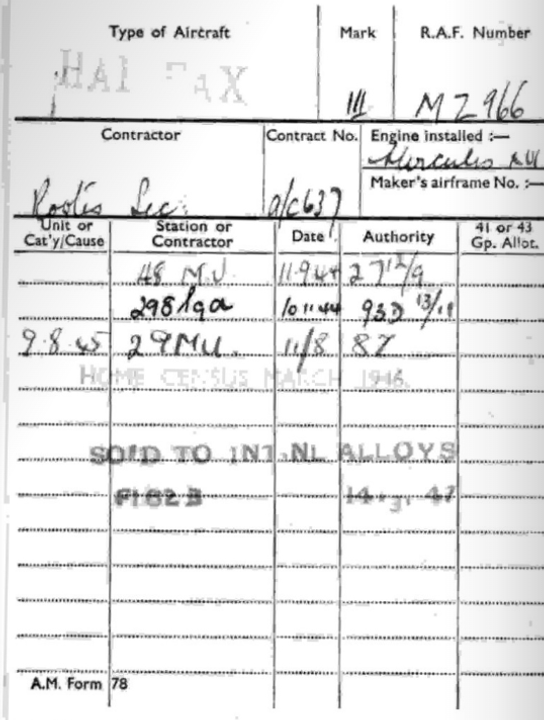 Type of Aircraft Mark R.A.F. Number
HALIFAX III MZ966
Contractor Contract No. Engine installed :—
Hercules
Maker's airframe No. :—
Rootes Sec: a/c637
Unit or Cat'y/Cause Station or Contractor Date Authority 41 or 43 Gp. Allot.
48 M.U. 11.9.44 27 12/9
298 Sqd 10 11 44 93D 13/11
9.8.45 29MU. 11/8 87
HOME CENSUS MARCH 1946.
SOLD TO INT.NL ALLOYS
F182B 14.3.47
A.M. Form 78